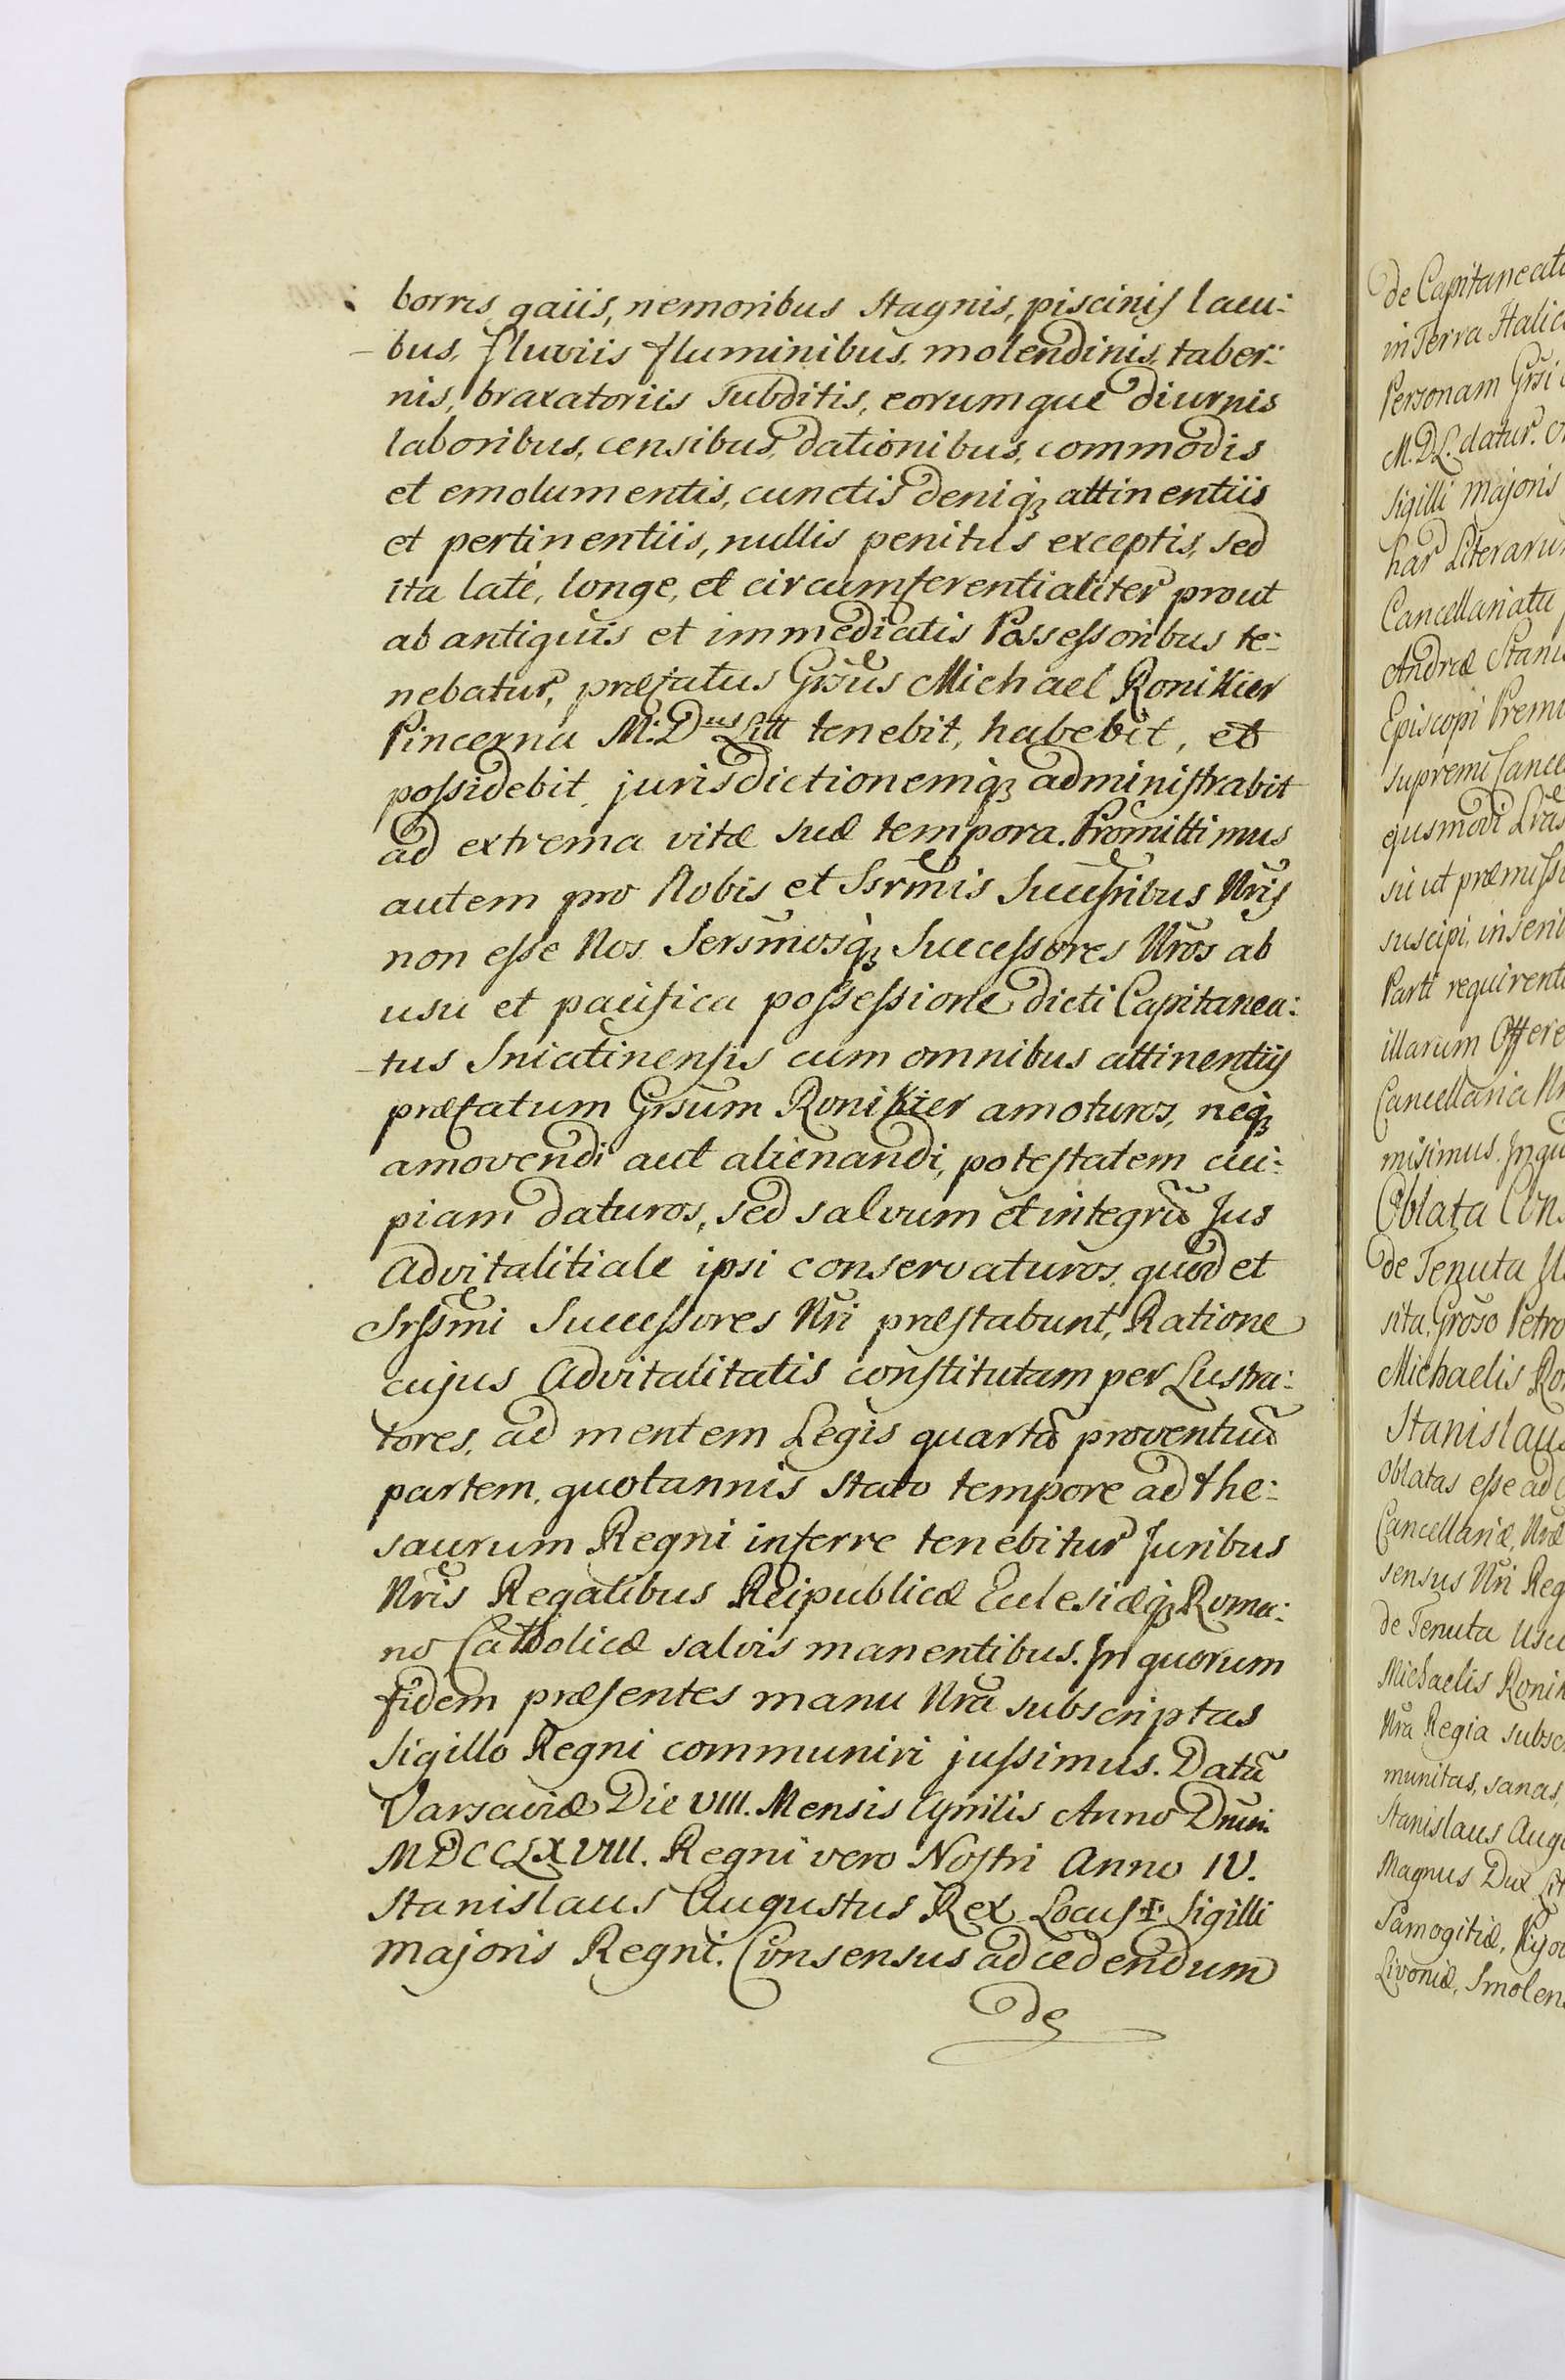 borris, gaiis, nemoribus stagnis, piscinis lacu:
bus, fluviis fluminibus, molendinis, taber:
nis, braxatoriis subditis, eorumque diurnis
laboribus, censibus, dationibus, commodis
et emolumentis, cunctis deniq₃ attinentiis
et pertinentiis, nullis penitus exceptis, sed
ita latè, longe, et circumferentialiter prout
ab antiquis et immediatis Possessoribus te:
nebatur, præfatus Grsus Michael Ronikier
Pincerna M: D^us Litt tenebit, habebit, et
possidebit, jurisdictionemq₃ administrabit
ad extrema vitæ suæ tempora. Promittimus
autem pro Nobis et Ssrmis Succssribus Nris
non esse Nos Sersmosq₃ Successores Nros ab
usu et pacifica possessione dicti Capitanea:
tus Sniatinensis cum omnibus attinentiis
præfatum Grsum Ronikier amoturos, neq₃
amovendi aut alienandi, potestatem cui:
piam daturos, sed salvum et integrũ Jus
Advitalitiale ipsi conservaturos, quod et
Srssmi Successores Nri præstabunt, Ratione
cujus Advitalitatis constitutam per Lustra:
tores, ad mentem Legis quartã proventuũ
partem, quotannis stato tempore ad the:
saurum Regni inferre tenebitur Juribus
Nris Regalibus Reipublicæ Eclesiæq₃ Roma:
no Catholicæ salvis manentibus. In quorum
fidem præsentes manu Nra subscriptas
Sigillo Regni communiri jussimus. Datũ
Varsaviæ Die VIII. Mensis Aprilis Anno Dnni
MDCCLXVIII. Regni vero Nostri Anno IV.
Stanislaus Augustus Rex Locus ✝ Sigilli
majoris Regni. Consensus ad cedendum
de
de Capitaneat
in Terra Halic
Personam Grsi
M. D. L. datur.
Sigilli majoris
har Literaru
Cancellariatu
Andreæ Stani
Episcopi Premi
supremi Cance
ejusmodi Lras
su ut præmiss
suscipi, inseri
Parti requirent
illarum Offere
Cancellaria Nr
misimus. In qu
Oblata Cons
de Tenuta
sita, Groso Petro
Michaelis Ro
Stanislau
oblatas esse ad
Cancellariæ, Nræ
sensus Nri Reg
de Tenuta
Michaelis Roni
Nra Regia subsc
munitas, sanas,
Stanislaus Aug
Magnus Dux Lit
Samogitiæ, Kijo
Livoniæ, Smolen